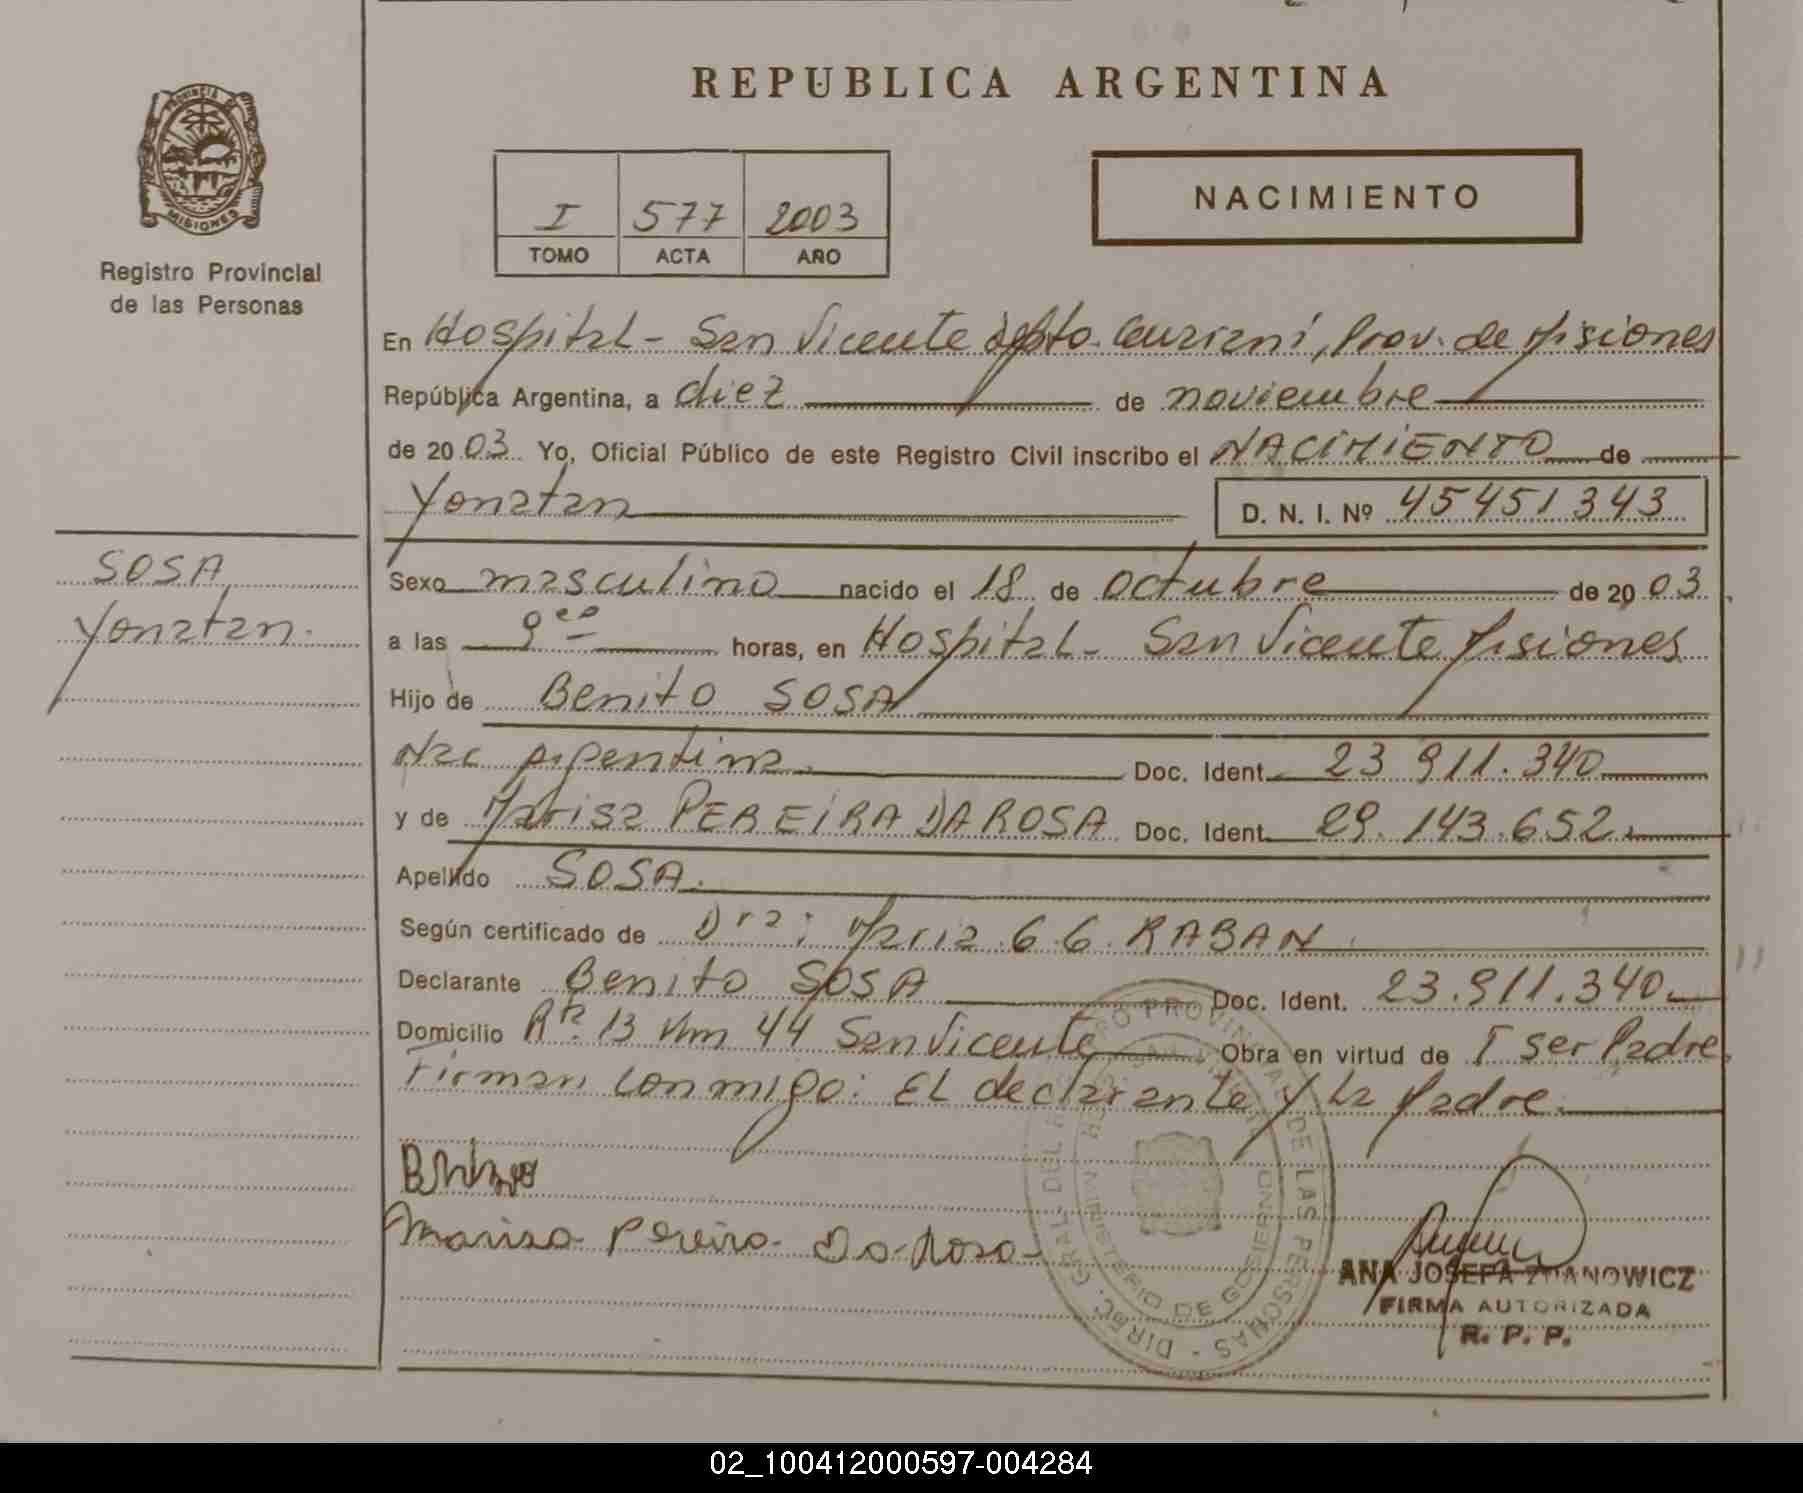 REPUBLICA ARGENTINA
PROVINCIA DE
MISIONES
Registro Provincial
de las Personas
I 577 2003
TOMO ACTA AÑO
NACIMIENTO
En Hospital - San Vicente dpto. Guaraní, Prov. de Misiones
República Argentina, a diez de noviembre
de 2003 Yo, Oficial Público de este Registro Civil inscribo el NACIMIENTO de
Yonatan
D. N. I. Nº 45451343
SOSA
Yonatan.
Sexo masculino nacido el 18 de octubre de 2003
a las 9 horas, en Hospital - San Vicente Misiones
Hijo de Benito SOSA
Nac Argentina. Doc. Ident. 23 911.340
y de Marisa PEREIRA DA ROSA Doc. Ident. 29.143.652.
Apellido SOSA.
Según certificado de Dra: Maria G. G. RABAN
Declarante Benito SOSA Doc. Ident. 23.911.340
Domicilio Rta. 13 Km 44 San Vicente Obra en virtud de I ser Padre.
Firman conmigo: El declarante y la Madre.
Marisa Pereira Da Rosa
DIREC. GRAL. DEL REGISTRO PROVINCIAL DE LAS PERSONAS -
MINISTERIO DE GOBIERNO
ANA JOSEFA ZDANOWICZ
FIRMA AUTORIZADA
R. P. P.
02_100412000597-004284